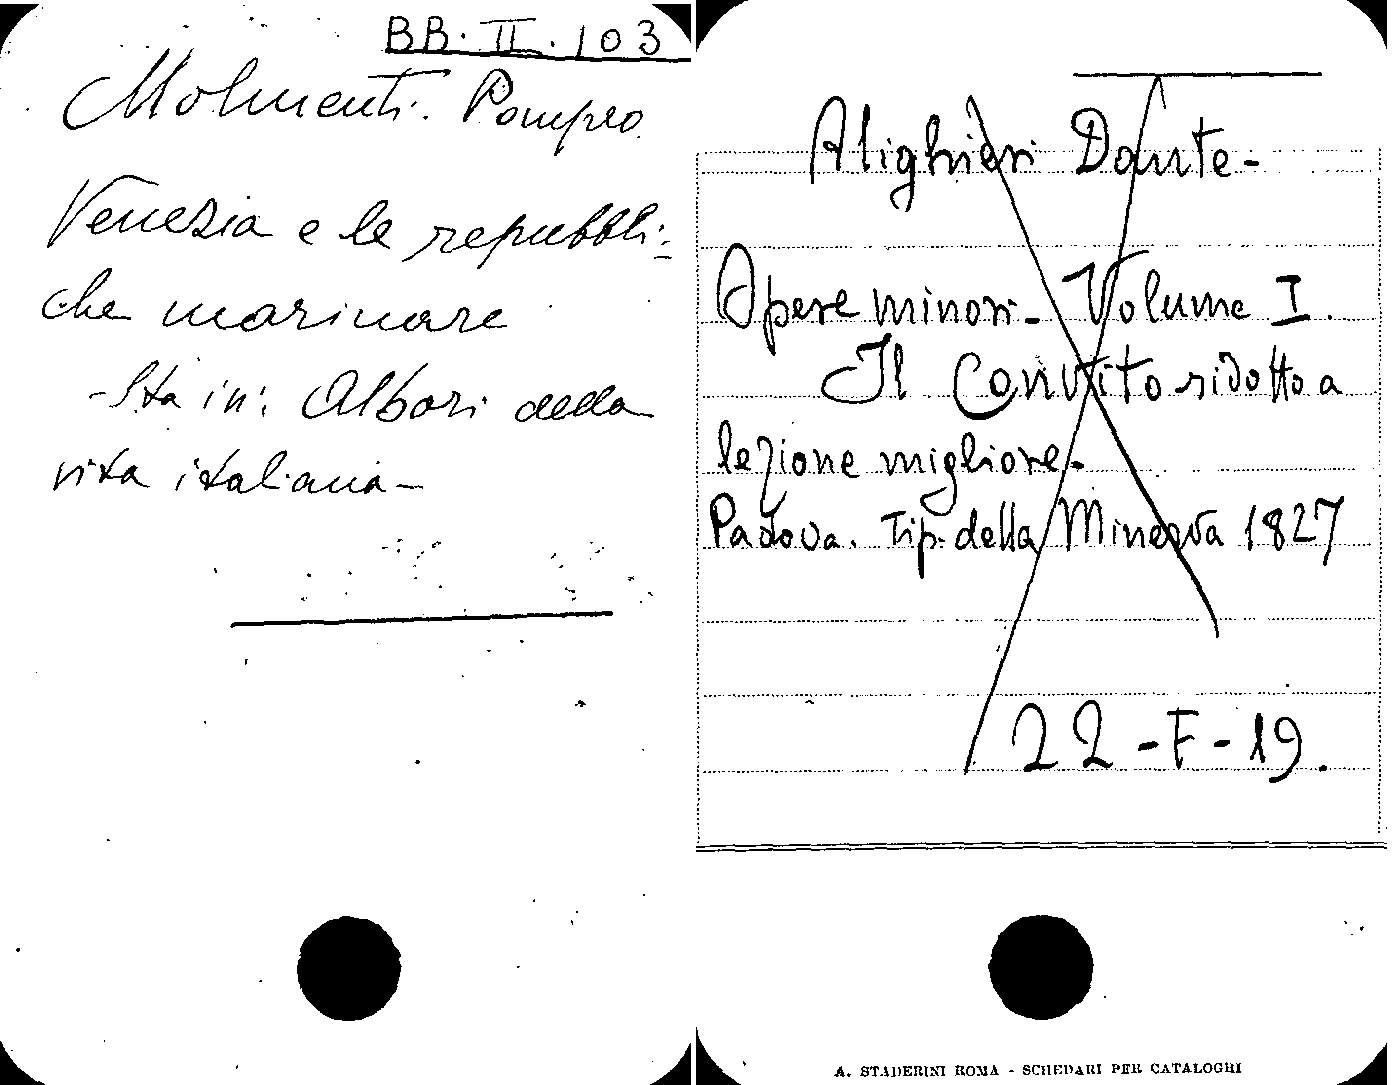 BB. II. 103
Molmenti. Pompeo
Venezia e le repubbli=
che marinare
- Sta in: Albori della
vita italiana -
Alighieri Dante -
Opere minori - Volume I.
Il Convito ridotto a
lezione migliore -
Padova. Tip. della Minerva 1827
22 - F - 19.
A. STADERINI ROMA - SCHEDARI PER CATALOGHI